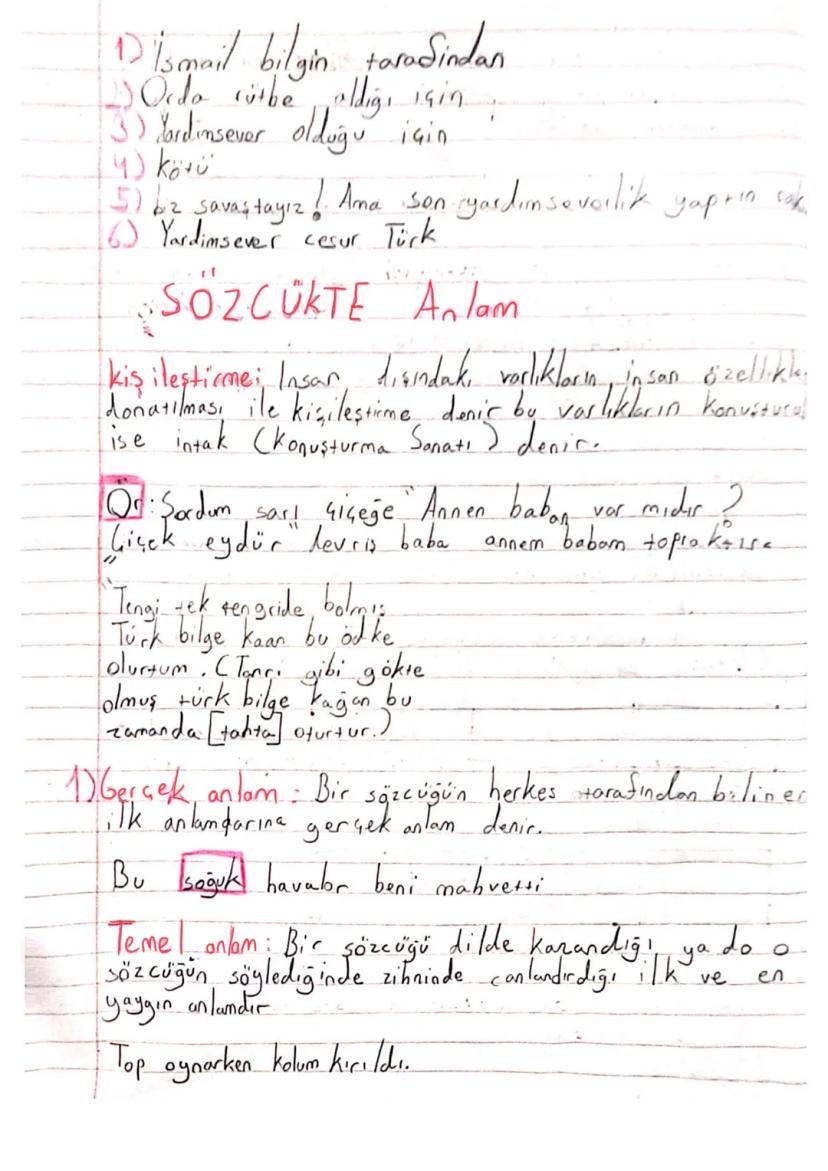 1) İsmail bilgin tarafından
2) Orda rütbe aldığı için
3) Yardımsever olduğu için
4) kötü
5) biz savaştayız! Ama son yardımseverlik yaptın
6) Yardimsever cesur Türk
SÖZCÜKTE Anlam
kişileştirme; İnsan dışındakı varlıkların insan özellikle
donatılması ile kişileştirme denir bu varlıkların konuşturul
ise intak (Konuşturma Sanatı) denir.
Ör: Sordum sarı çiçeğe "Annen baban var mıdır?
Çiçek eydür" devriş baba annem babam topraktır.
"Tengi tek tengride bolmış
Türk bilge kaan bu ödke
olurtum. (Tanrı gibi gökte
olmuş türk bilge kağan bu
zamanda [tahta] oturtur.)
1) Gerçek anlam: Bir sözcüğün herkes tarafından biliner
ilk anlamlarına gerçek anlam denir.
Bu soğuk havalar beni mahvetti
Temel anlam: Bir sözcüğü dilde kazandığı ya da o
sözcüğün söylediğinde zihninde canlandırdığı ilk ve en
yaygın anlamdır
Top oynarken kolum kırıldı.